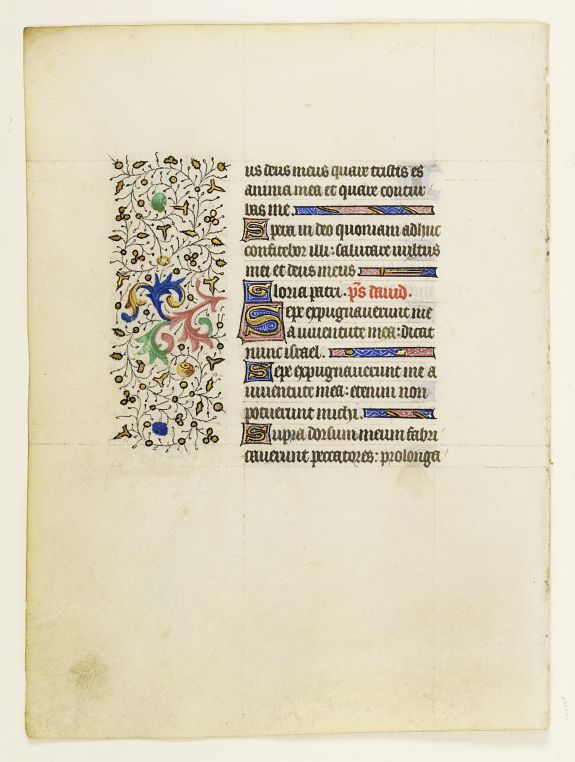 us deus meus quare tristis es
anima mea et quare contur
bas me.
Spera in deo quoniam adhuc
confitebor illi: salutare vultus
mei et deus meus
Gloria patri. p̄s david.
Sepe expugnaverunt me
a iuventute mea: dicat
nunc israel.
Sepe expugnaverunt me a
iuventute mea: etenim non
potuerunt michi.
Supra dorsum meum fabri
caverunt peccatores: prolonga